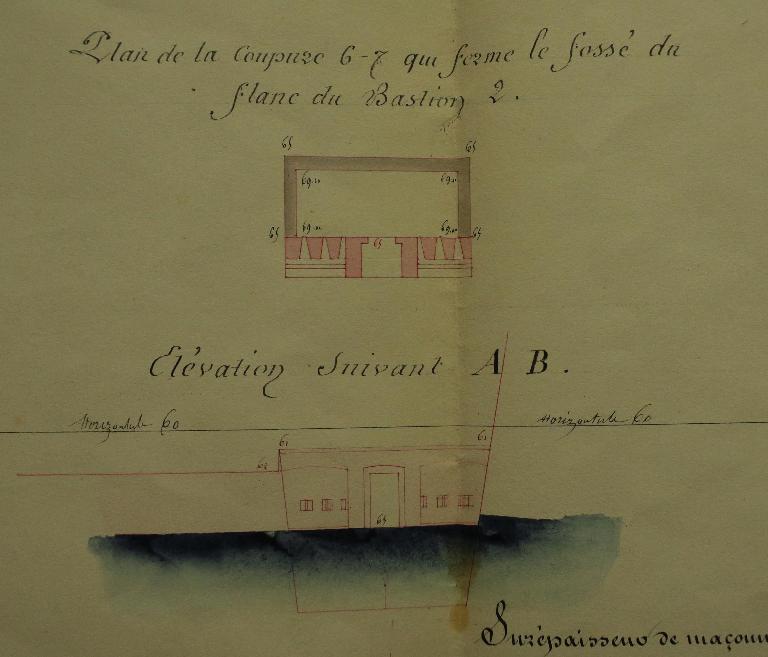 Plan de la Coupure 6-7 qui ferme le fossé du
flanc du Bastion 2.
65 65
69.10 69.10
65 69.10 69.10 65
65
Elévation Suivant A B.
Horizontale 60 Horizontale 60
61 61
62
65
Surépaisseurs de maçonn